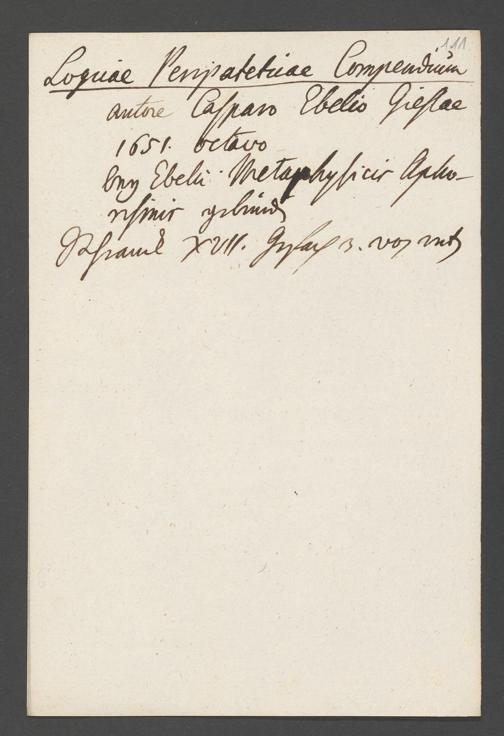 111
Logicae Peripateticae Compendium
autore Casparo Ebelio Giessae
1651. octavo
bey Ebelii Metaphysicis Apho-
rismis gebunden
Schranck XVII. 3. von